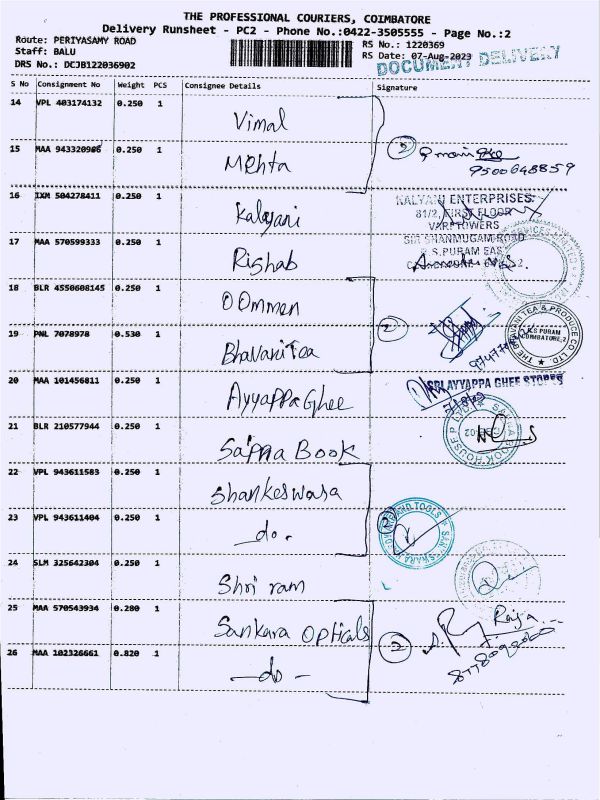 THE PROFESSIONAL COURIERS, COIMBATORE
Delivery Runsheet - PC2 - Phone No.:0422-3505555 - Page No.:2
Route: PERIYASAMY ROAD
Staff: BALU
DRS No.: DCJB122036902
RS No.: 1220369
RS Date: 07-Aug-2023
DOCUMENT DELIVERY
S No Consignment No Weight PCS Consignee Details Signature
14 VPL 403174132 0.250 1 Vimal
15 MAA 943320906 0.250 1 Mehta
2 9500648859
16 IXM 504278411 0.250 1 Kalayani
KALYANI ENTERPRISES
81/2, FIRST FLOOR
VARI TOWERS
SIR SHANMUGAM ROAD
R.S.PURAM EAS
17 MAA 570599333 0.250 1 Rishab
18 BLR 4550608145 0.250 1 OOmmen
2
19 PNL 7078978 0.530 1 Bhavani Tea
THE BHAVANI TEA & PRODUCE CO. LTD.
R.S PURAM
COIMBATORE.2
20 MAA 101456811 0.250 1 Ayyappa Ghee
SRI AYYAPPA GHEE STORES
21 BLR 210577944 0.250 1 Sapna Book
22 VPL 943611583 0.250 1 Shankeswara
23 VPL 943611404 0.250 1 -do.
2
24 SLM 325642304 0.250 1 Shri ram
25 MAA 570543934 0.280 1 Sankara Opticals
2 Raja
26 MAA 102326661 0.820 1 -do-